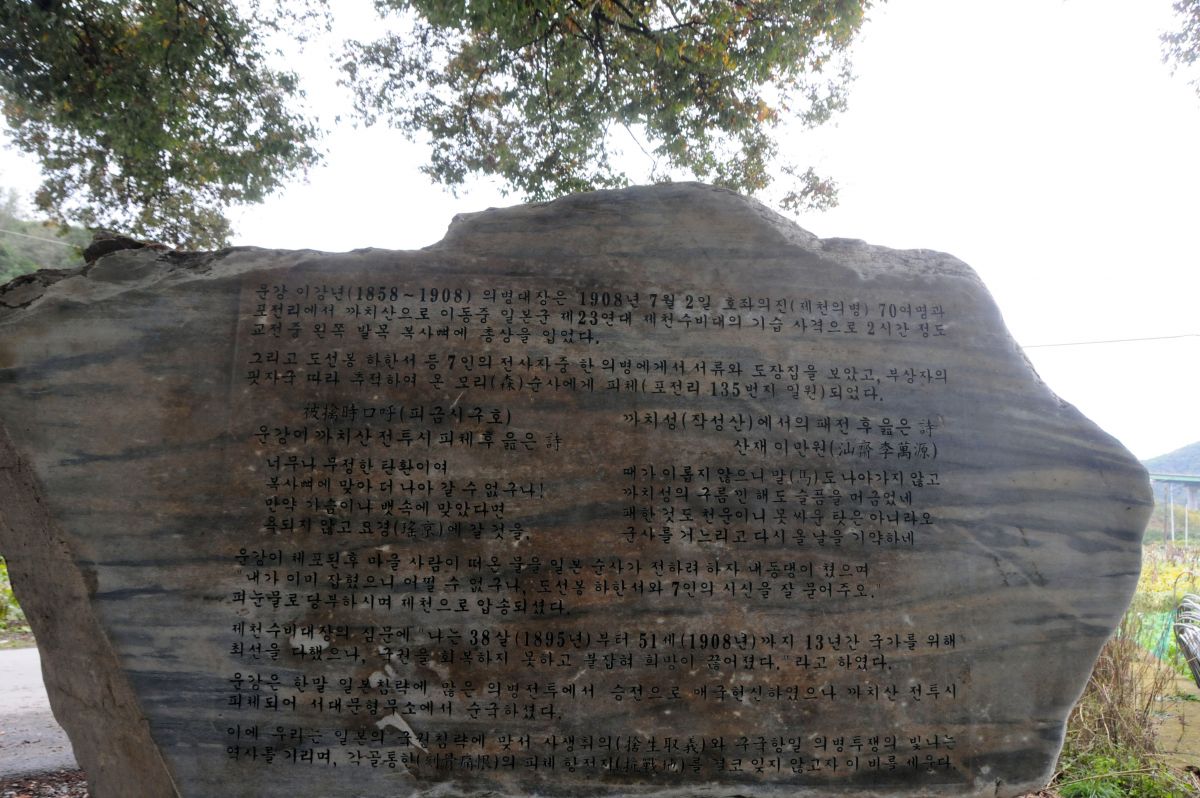 운강 이강년(1858~1908) 의병대장은 1908년 7월 2일 호좌의진(제천의병) 70여명과
포전리에서 까치산으로 이동중 일본군 제23연대 제천수비대의 기습 사격으로 2시간 정도
교전중 왼쪽 발목 복사뼈에 총상을 입었다.
그리고 도선봉 하한서 등 7인의 전사자중 한 의병에게서 서류와 도장집을 보았고, 부상자의
핏자국 따라 추적하여 온 모리(森)순사에게 피체(포전리 135번지 일원)되었다.
被擒時口呼(피금시구호)
운강이 까치산 전투시 피체 후 읊은 詩
너무나 무정한 탄환이여
복사뼈에 맞아 더 나아 갈 수 없구나!
만약 가슴이나 뱃속에 맞았다면
욕되지 않고 요경(瑤京)에 갈 것을.
까치성(작성산)에서의 패전 후 읊은 詩
산재 이만원(汕齋 李萬源)
때가 이롭지 않으니 말(馬)도 나아가지 않고
까치성의 구름 낀 해도 슬픔을 머금었네
패한 것도 천운이니 못 싸운 탓은 아니라오
군사를 거느리고 다시 올 날을 기약하네
운강이 체포된후 마을 사람이 떠온 물을 일본 순사가 전하려 하자 내동댕이 쳤으며
"내가 이미 잡혔으니 어쩔 수 없구나, 도선봉 하한서와 7인의 시신을 잘 묻어주오."
피눈물로 당부하시며 제천으로 압송되셨다.
제천수비대장의 심문에 "나는 38살(1895년)부터 51세(1908년)까지 13년간 국가를 위해
최선을 다했으나, 국권을 회복하지 못하고 붙잡혀 희망이 끊어졌다."라고 하였다.
운강은 한말 일본침략에 많은 의병전투에서 승전으로 애국헌신하였으나 까치산 전투시
피체되어 서대문형무소에서 순국하셨다.
이에 우리는 일본의 국권침략에 맞서 사생취의(捨生取義)와 구국항일 의병투쟁의 빛나는
역사를 기리며, 각골통한(刻骨痛恨)의 피체 항전지(抗戰地)를 결코 잊지 않고자 이 비를 세운다.